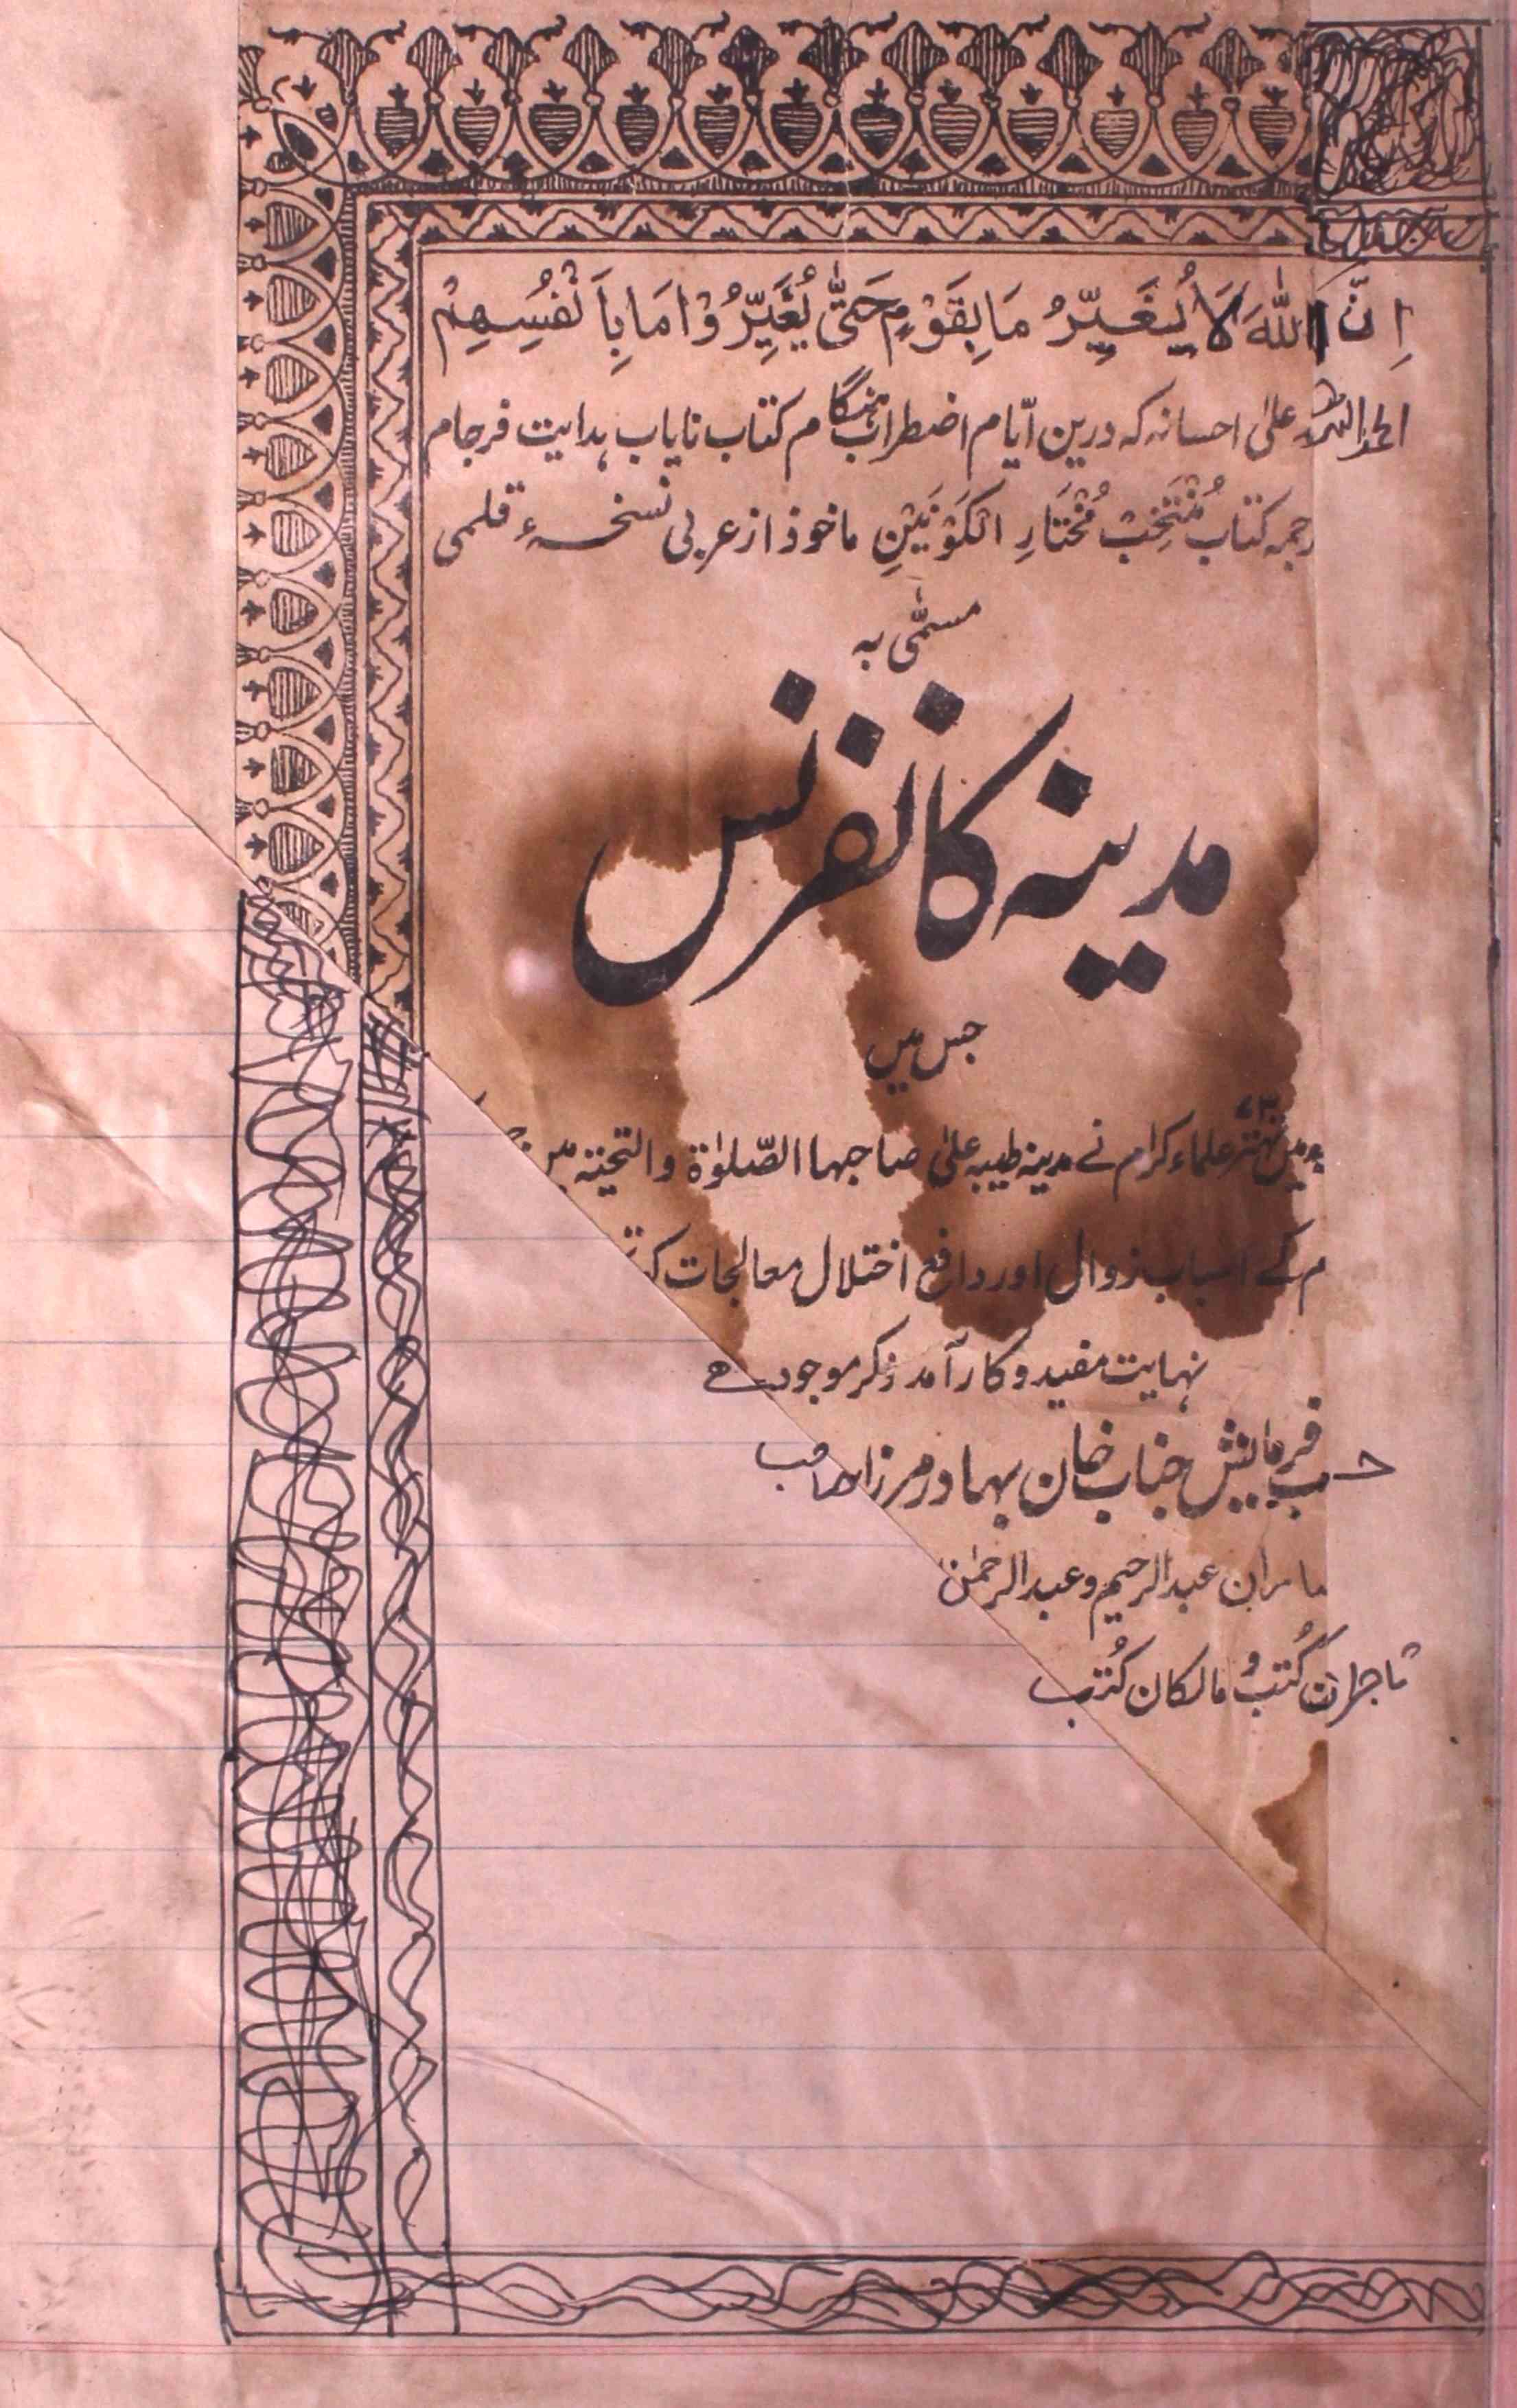 اِنَّ اللّٰهَ لَا یُغَیِّرُ مَا بِقَوْمٍ حَتّٰی یُغَیِّرُوْا مَا بِاَنْفُسِهِمْ
الحمدللہ علیٰ احسانہ کہ درین ایّام اضطراب ہنگام کتاب نایاب ہدایت فرجام
رجمہ کتاب مُنْتَخَبْ مُخْتَارِ الْکَوْنَیْنِ ماخوذ از عربی نسخۂ قلمی
مسمّٰی بہ
مدینہ کانفرنس
جس میں
میں تہتر علماء کرام نے مدینہ طیبہ علیٰ صاحبہا الصّلوٰۃ والتحیّتہ میں
م کے اسباب زوال اور دافع اختلال معالجات کے
نہایت مفید و کارآمد ذکر موجود ہے
حسب فرمایش جناب خان بہادر مرزا صاحب
عبدالرحیم و عبدالرحمٰن
تاجران کُتب و مالکان کُتب